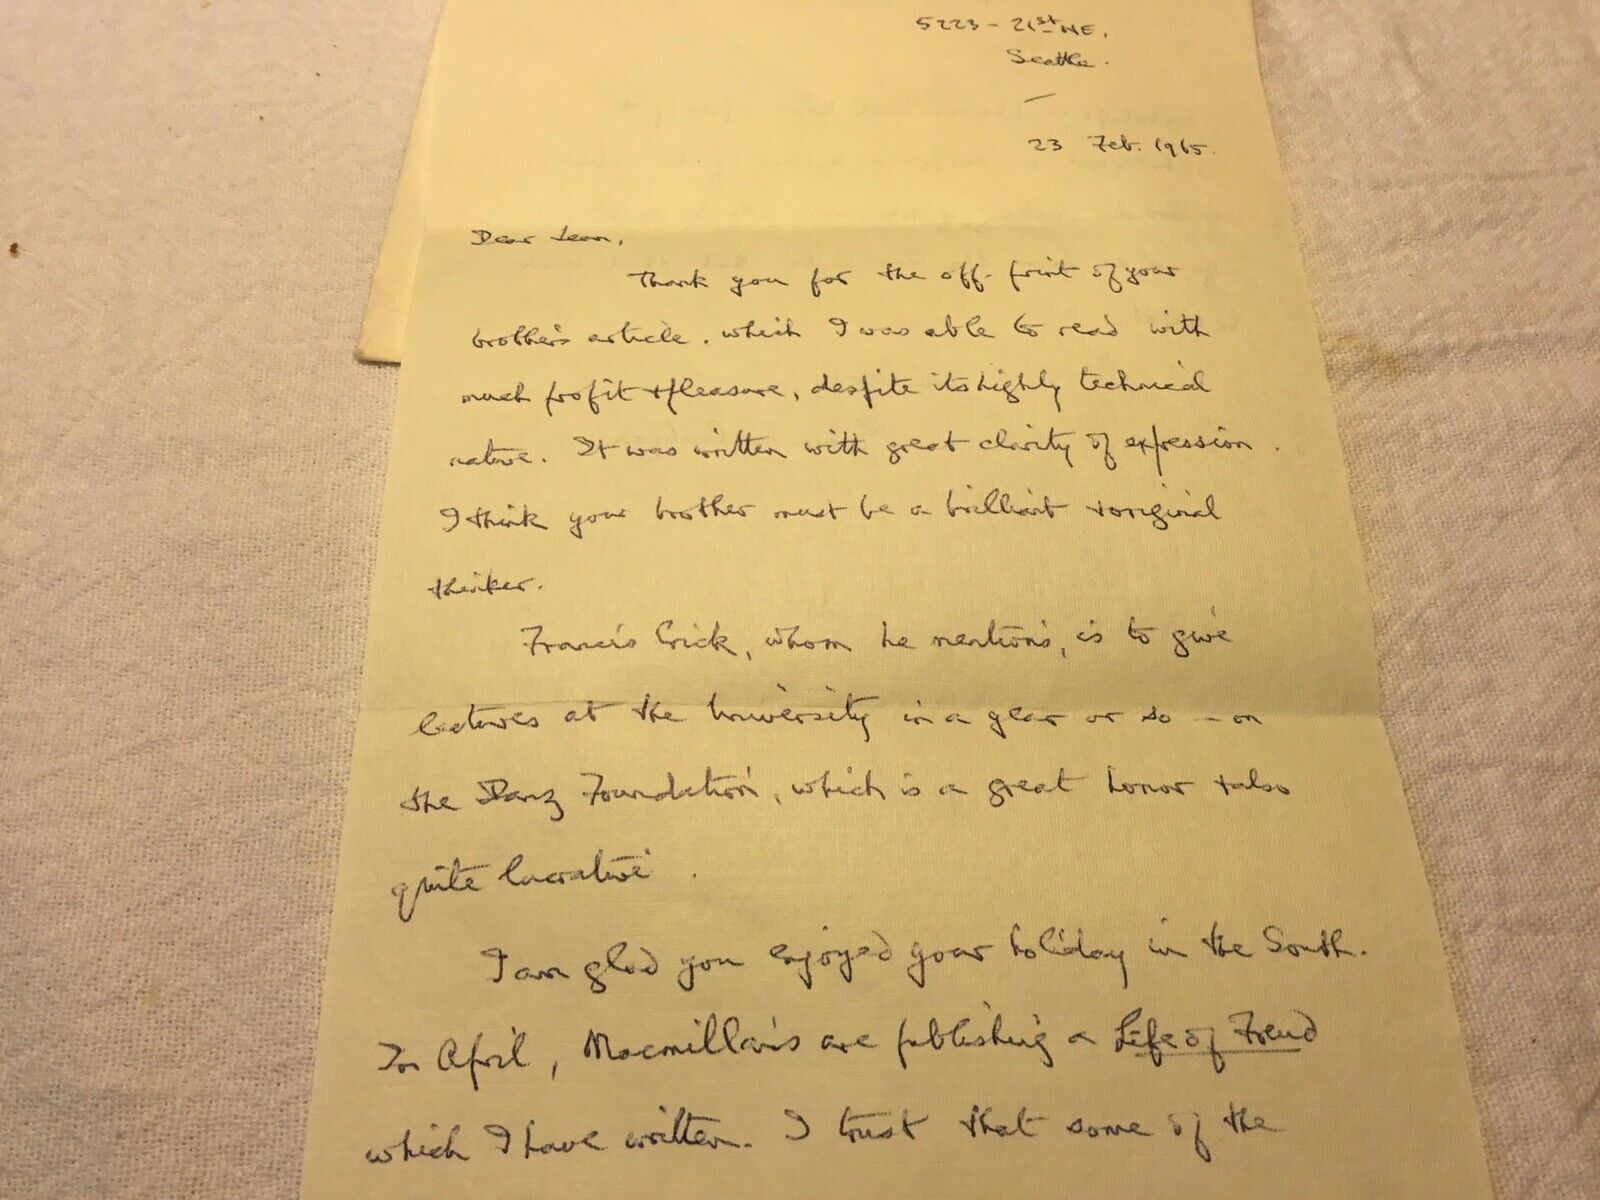 5223 - 21st NE.
Seattle.
23 Feb. 1965.
Dear Jean,
Thank you for the off-print of your
brother's article. which I was able to read with
much profit & pleasure, despite its highly technical
nature. It was written with great clarity of expression.
I think your brother must be a brilliant & original
thinker.
Francis Crick, whom he mentions, is to give
lectures at the University in a year or so - on
the Danz Foundation, which is a great honor & also
quite lucrative.
I am glad you enjoyed your holiday in the South.
In April, Macmillan's are publishing a Life of Freud
which I have written. I trust that some of the